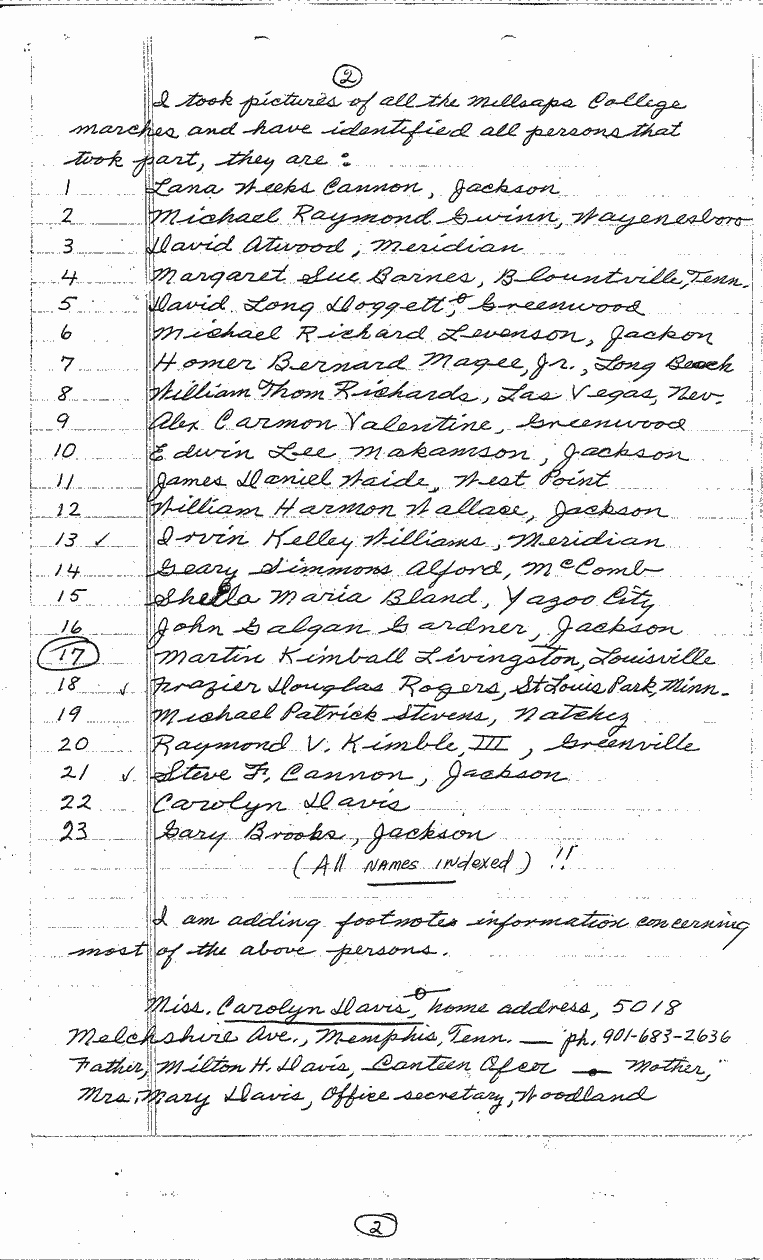 2
I took pictures of all the Millsaps College
marches and have identified all persons that
took part, they are :
1 Lana Weeks Cannon, Jackson
2 Michael Raymond Gwinn, Wayenesboro
3 David Atwood, Meridian
4 Margaret Sue Barnes, Blountville, Tenn.
5 David Long Doggett, Greenwood
6 Michael Richard Levenson, Jackon
7 Homer Bernard Magee, Jr., Long Beach
8 William Thom Richards, Las Vegas, Nev.
9 Alex Carmon Valentine, Greenwood
10 Edwin Lee Makamson, Jackson
11 James Daniel Waide, West Point
12 William Harmon Wallace, Jackson
13 ✓ Irvin Kelley Williams, Meridian
14 Geary Simmons Alford, McComb
15 Sheila Maria Bland, Yazoo City
16 John Galgan Gardner, Jackson
17 Martin Kimball Livingston, Louisville
18 ✓ Frazier Douglas Rogers, St Louis Park, Minn.
19 Michael Patrick Stevens, Natchez
20 Raymond V. Kimble, III, Greenville
21 ✓ Steve F. Cannon, Jackson
22 Carolyn Davis
23 Gary Brooks, Jackson
(All NAMES INdexed) !!
I am adding footnotes information concerning
most of the above persons.
Miss. Carolyn Davis, home address, 5018
Melckshire Ave., Memphis, Tenn. — ph. 901-683-2636
Father, Milton H. Davis, Canteen Ofcer — Mother,
Mrs. Mary Davis, Office secretary, Woodland
2